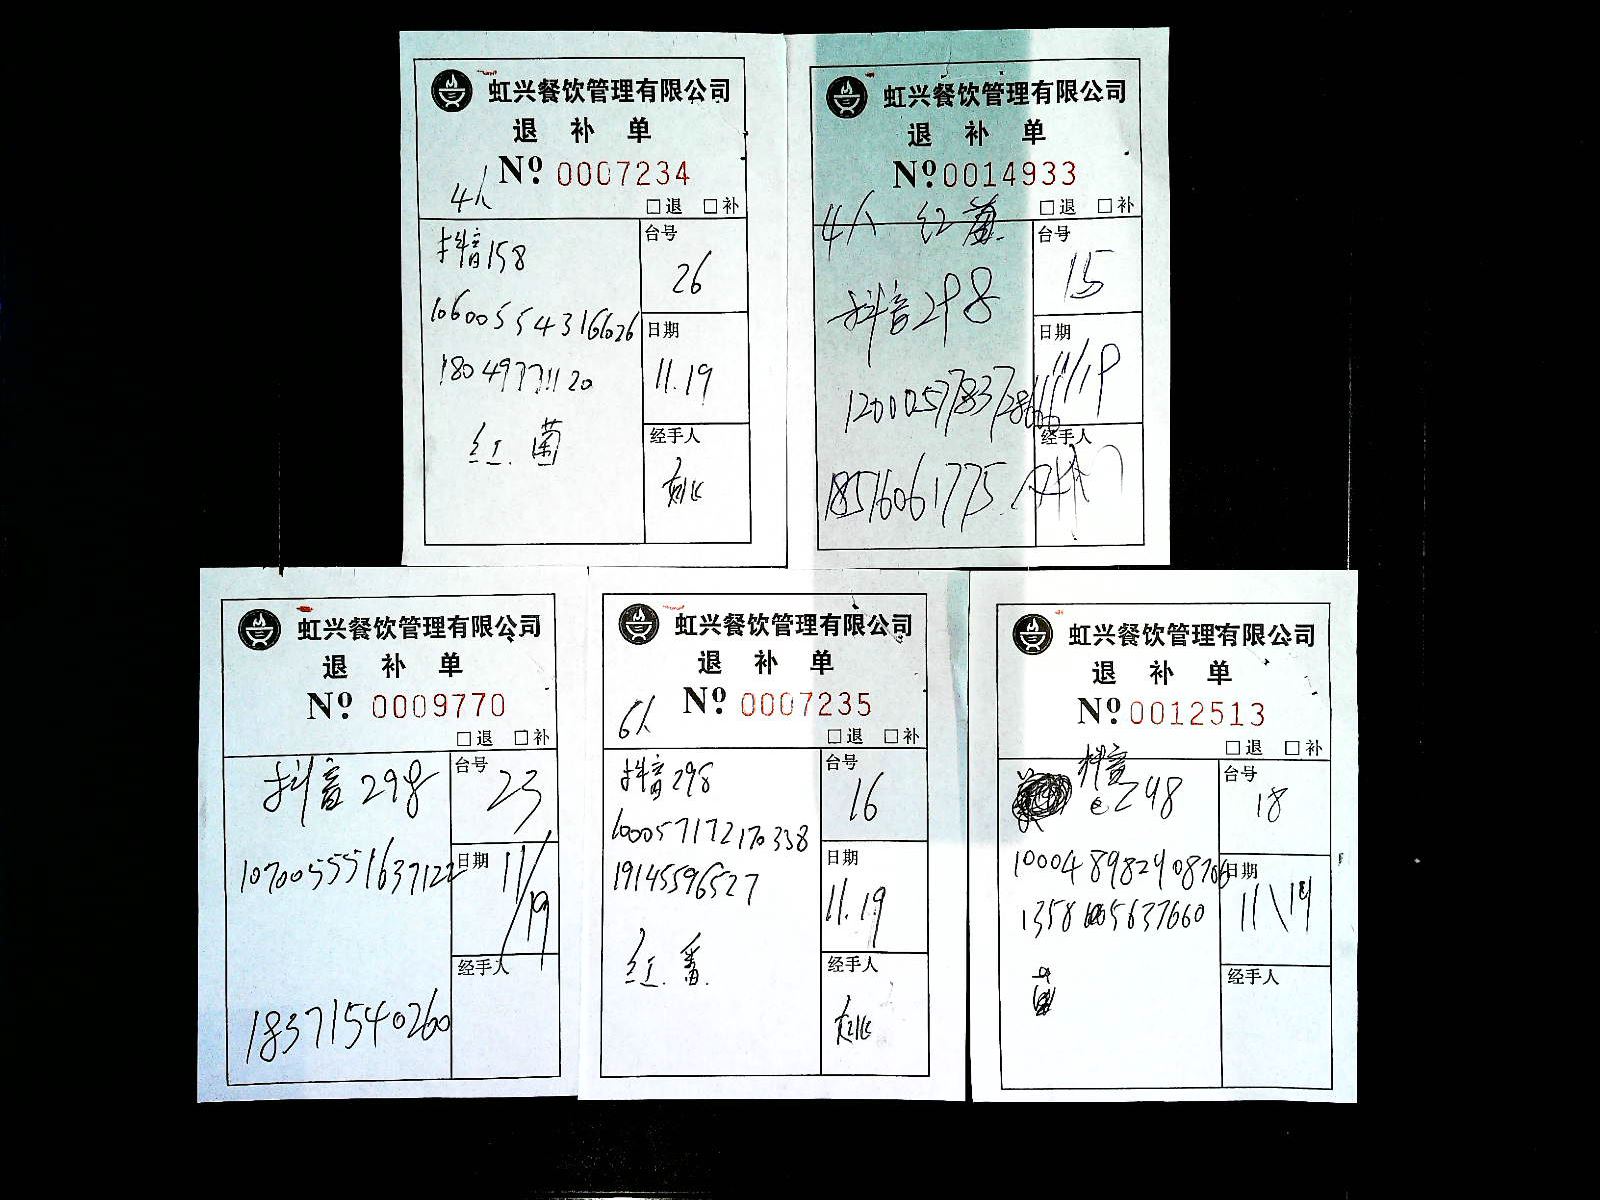 虹兴餐饮管理有限公司
退 补 单
Nº 0007234
4人
□退 □补
抖音158
台号
26
106005543166026
日期
18049771120
11.19
红. 菌
经手人
虹兴餐饮管理有限公司
退 补 单
Nº 0014933
4人 红菌.
□退 □补
台号
15
抖音298
日期
11/19
经手人
18516061775.
虹兴餐饮管理有限公司
退 补 单
Nº 0009770
□退 □补
抖音298
台号
23
107005551637122
日期
11/19
经手人
18371540260
虹兴餐饮管理有限公司
退 补 单
Nº 0007235
6人
□退 □补
抖音298
台号
16
100057172170338
日期
19145596527
11.19
红.番.
经手人
虹兴餐饮管理有限公司
退 补 单
Nº 0012513
□退 □补
抖音
298
台号
18
100048982908706
日期
11\19
经手人